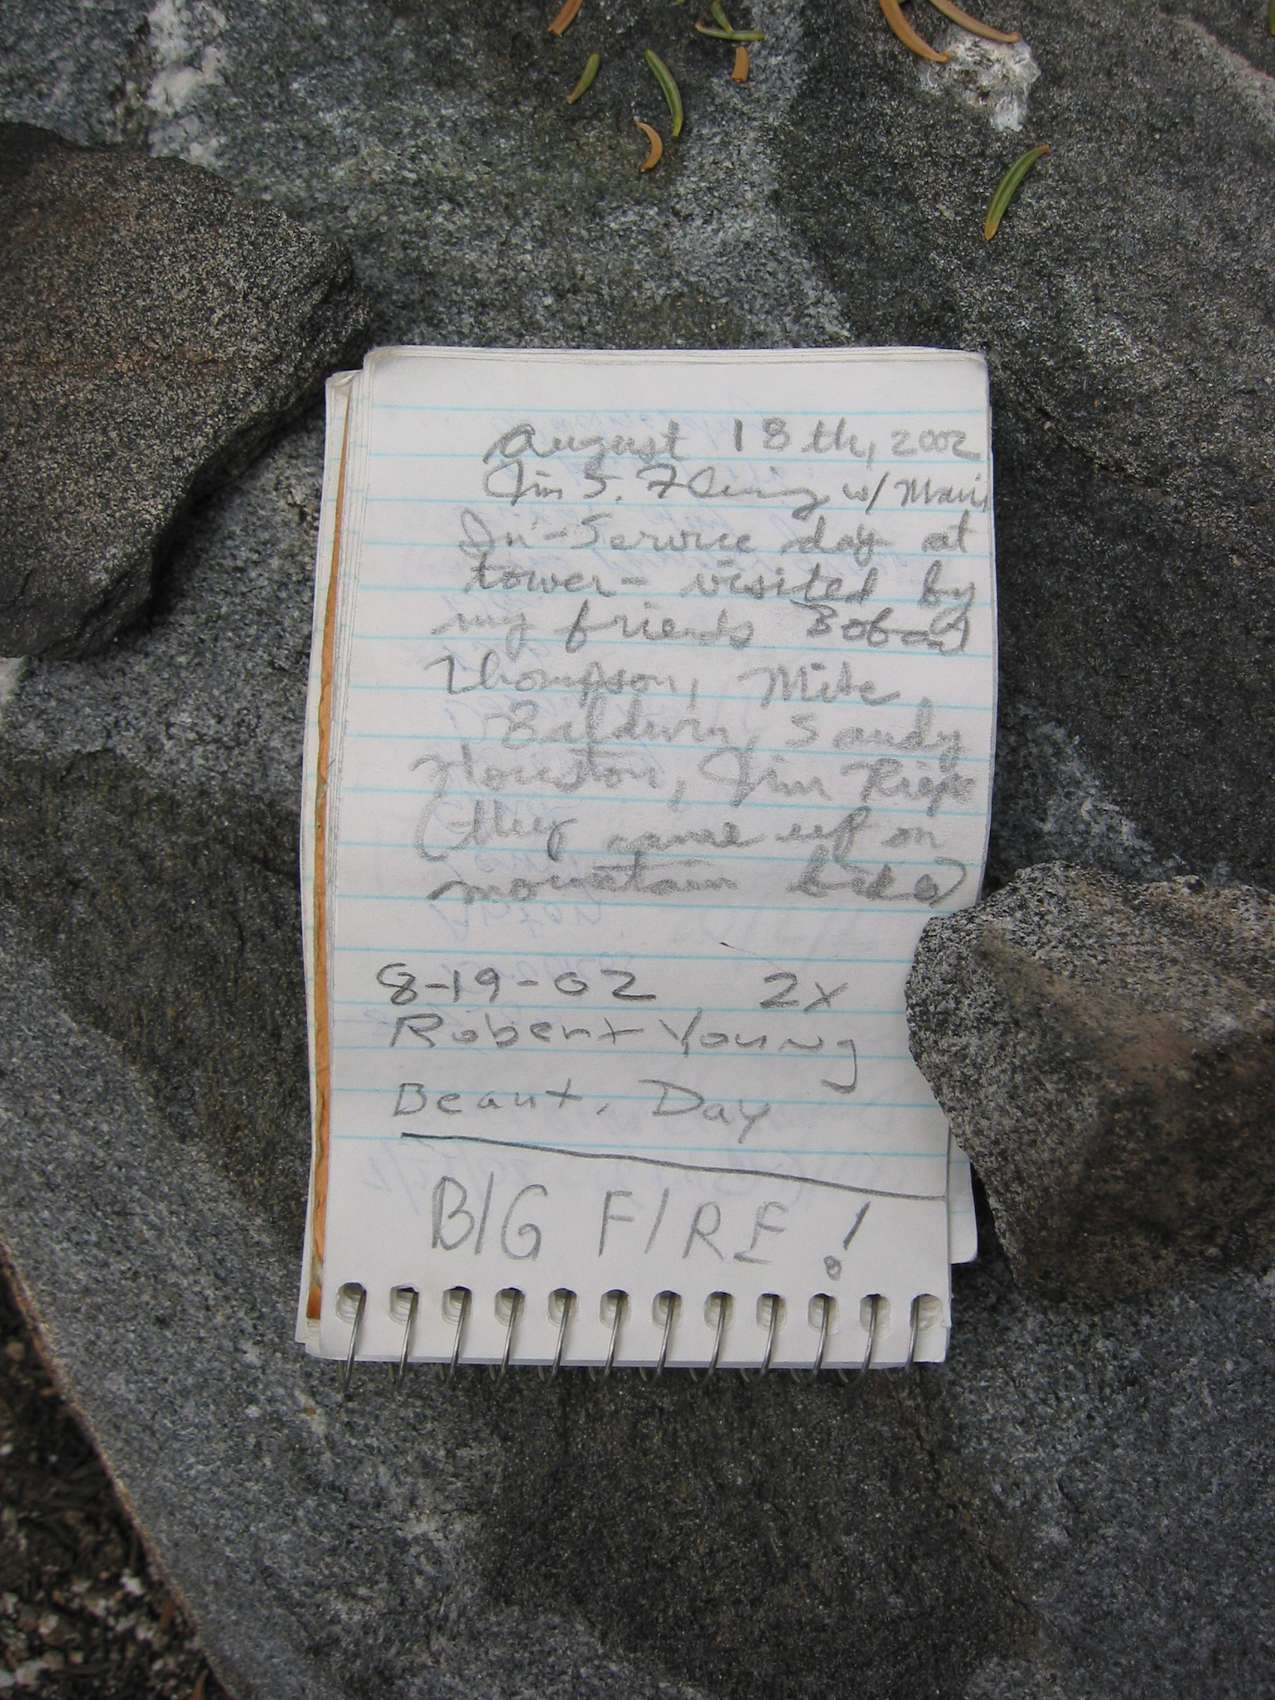 August 18th, 2002
Jim S. Fleming w/ Mavis
In-Service day at
tower - visited by
my friends
Thompson, Mike
Baldwin, Sandy
Houston, Jim
(they came up on
mountain bikes)
8-19-02 2x
Robert Young
Beaut. Day
BIG FIRE!